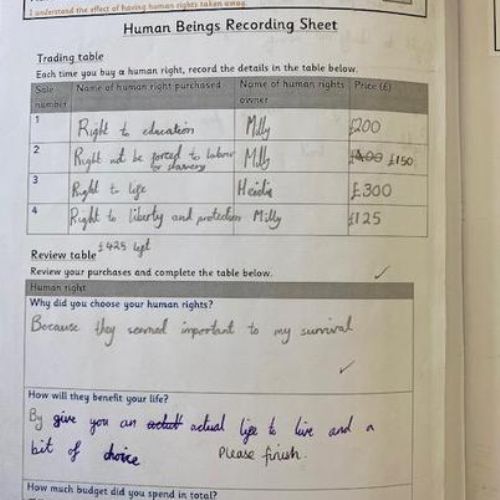 I understand the effect of having human rights taken away.
Human Beings Recording Sheet
Trading table
Each time you buy a human right, record the details in the table below.
Sale number Name of human right purchased Name of human rights owner Price (£)
1 Right to education Milly £200
2 Right not be forced to labour or slavery Milly £400 £150
3 Right to life Heidi £300
4 Right to liberty and protection Milly £125
£425 left
Review table
Review your purchases and complete the table below.
Human right
Why did you choose your human rights?
Because they seemed important to my survival
How will they benefit your life?
By give you an actual life to live and a
bit of choice Please finish.
How much budget did you spend in total?